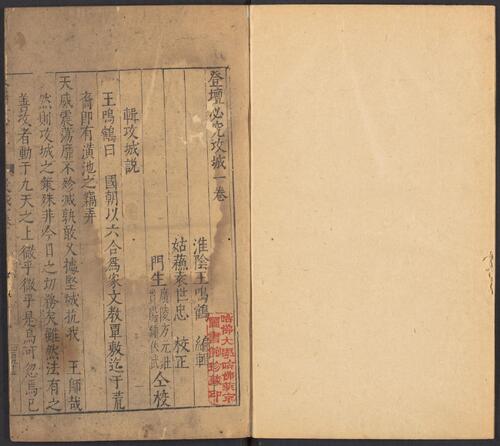 登壇必究攻城一卷
淮陰王鳴鶴 編輯
姑蘇袁世忠 校正
門生 廣陵方元壯 仝校
輯攻城説
王鳴鶴曰 國朝以六合爲家文教覃敷迄于荒
裔即有潢池之竊弄
天威震蕩靡不殄滅孰敢入據堅城抗我 王師哉
然則攻城之策殊非今日之切務矣雖然法有之
善攻者動于九天之上微乎微乎是烏可忽焉已
哈佛大學哈佛燕京
圖書館珍藏印